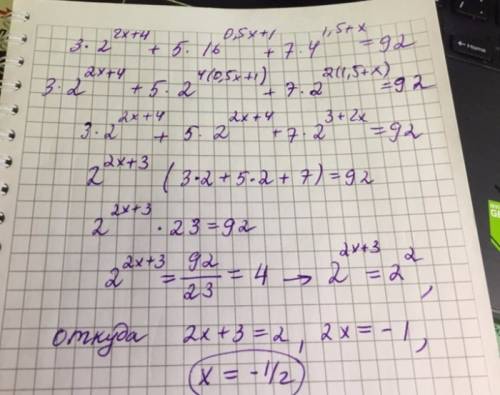 3·2^{2x+4} + 5·16^{0,5x+1} + 7·4^{1,5+x} = 92
3·2^{2x+4} + 5·2^{4(0,5x+1)} + 7·2^{2(1,5+x)} = 92
3·2^{2x+4} + 5·2^{2x+4} + 7·2^{3+2x} = 92
2^{2x+3} (3·2+5·2+7) = 92
2^{2x+3} · 23 = 92
2^{2x+3} = 92/23 = 4 → 2^{2x+3} = 2^2,
откуда 2x+3=2, 2x=-1,
x = -1/2